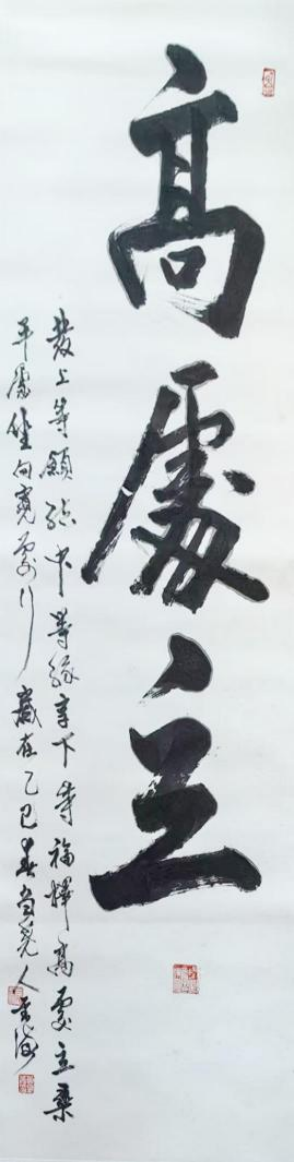 高處立
發上等願結中等緣享下等福擇高處立尋
平處坐向寬處行 歲在乙巳春